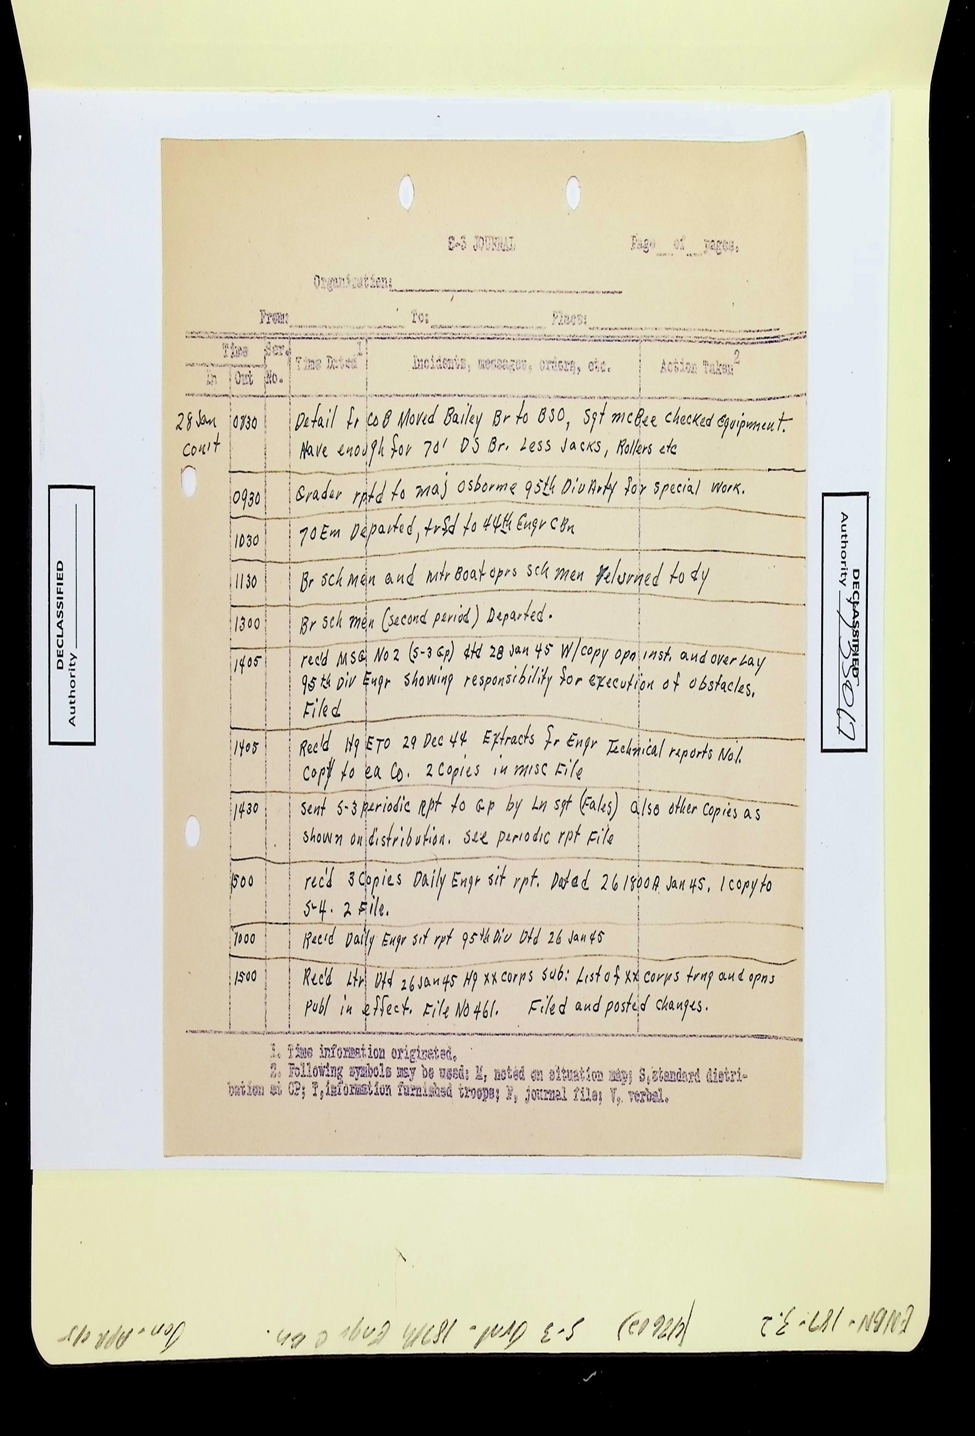 S-3 JOURNAL Page__of__pages.
Organization:
From: To: Place:
Time Ser. Time Dated 1 Incidents, messages, orders, etc. Action Taken 2
In Out No.
28 Jan 0830 Detail fr Co B Moved Bailey Br to BSO, Sgt McBee checked equipment.
Cont Have enough for 70' DS Br. Less Jacks, Rollers etc
0930 Grader rptd to Maj Osborne 95th Div Arty for special work.
1030 70 Em Departed, trfd to 44th Engr C Bn
1130 Br sch men and Mtr Boat oprs sch men Returned to dy
1300 Br sch men (second period) Departed.
1405 rec'd MSG No 2 (S-3 Gp) dtd 28 Jan 45 W/copy opn inst. and overlay
95th Div Engr showing responsibility for execution of obstacles.
Filed
1405 Rec'd Hq ETO 29 Dec 44 Extracts fr Engr Technical reports No1.
Copy to ea Co. 2 Copies in misc File
1430 sent S-3 periodic Rpt to Gp by Ln sgt (Fales) also other copies as
shown on distribution. See periodic rpt File
1500 rec'd 3 Copies Daily Engr sit rpt. Dated 26 1800A Jan 45. 1 copy to
S-4. 2 File.
1000 Rec'd Daily Engr sit rpt 95th Div Dtd 26 Jan 45
1500 Rec'd Ltr Dtd 26 Jan 45 Hq XX Corps Sub: List of XX Corps trng and opns
Publ in effect. File No 461. Filed and posted changes.
1. Time information originated.
2. Following symbols may be used: M, noted on situation map; S, standard distri-
bution at CP; T, information furnished troops; F, journal file; V, verbal.
DECLASSIFIED
Authority
DECLASSIFIED
Authority
ENBN-187-3.2 (47602) S-3 Jrnl - 187th Engr C Bn. Jan-Apr 45